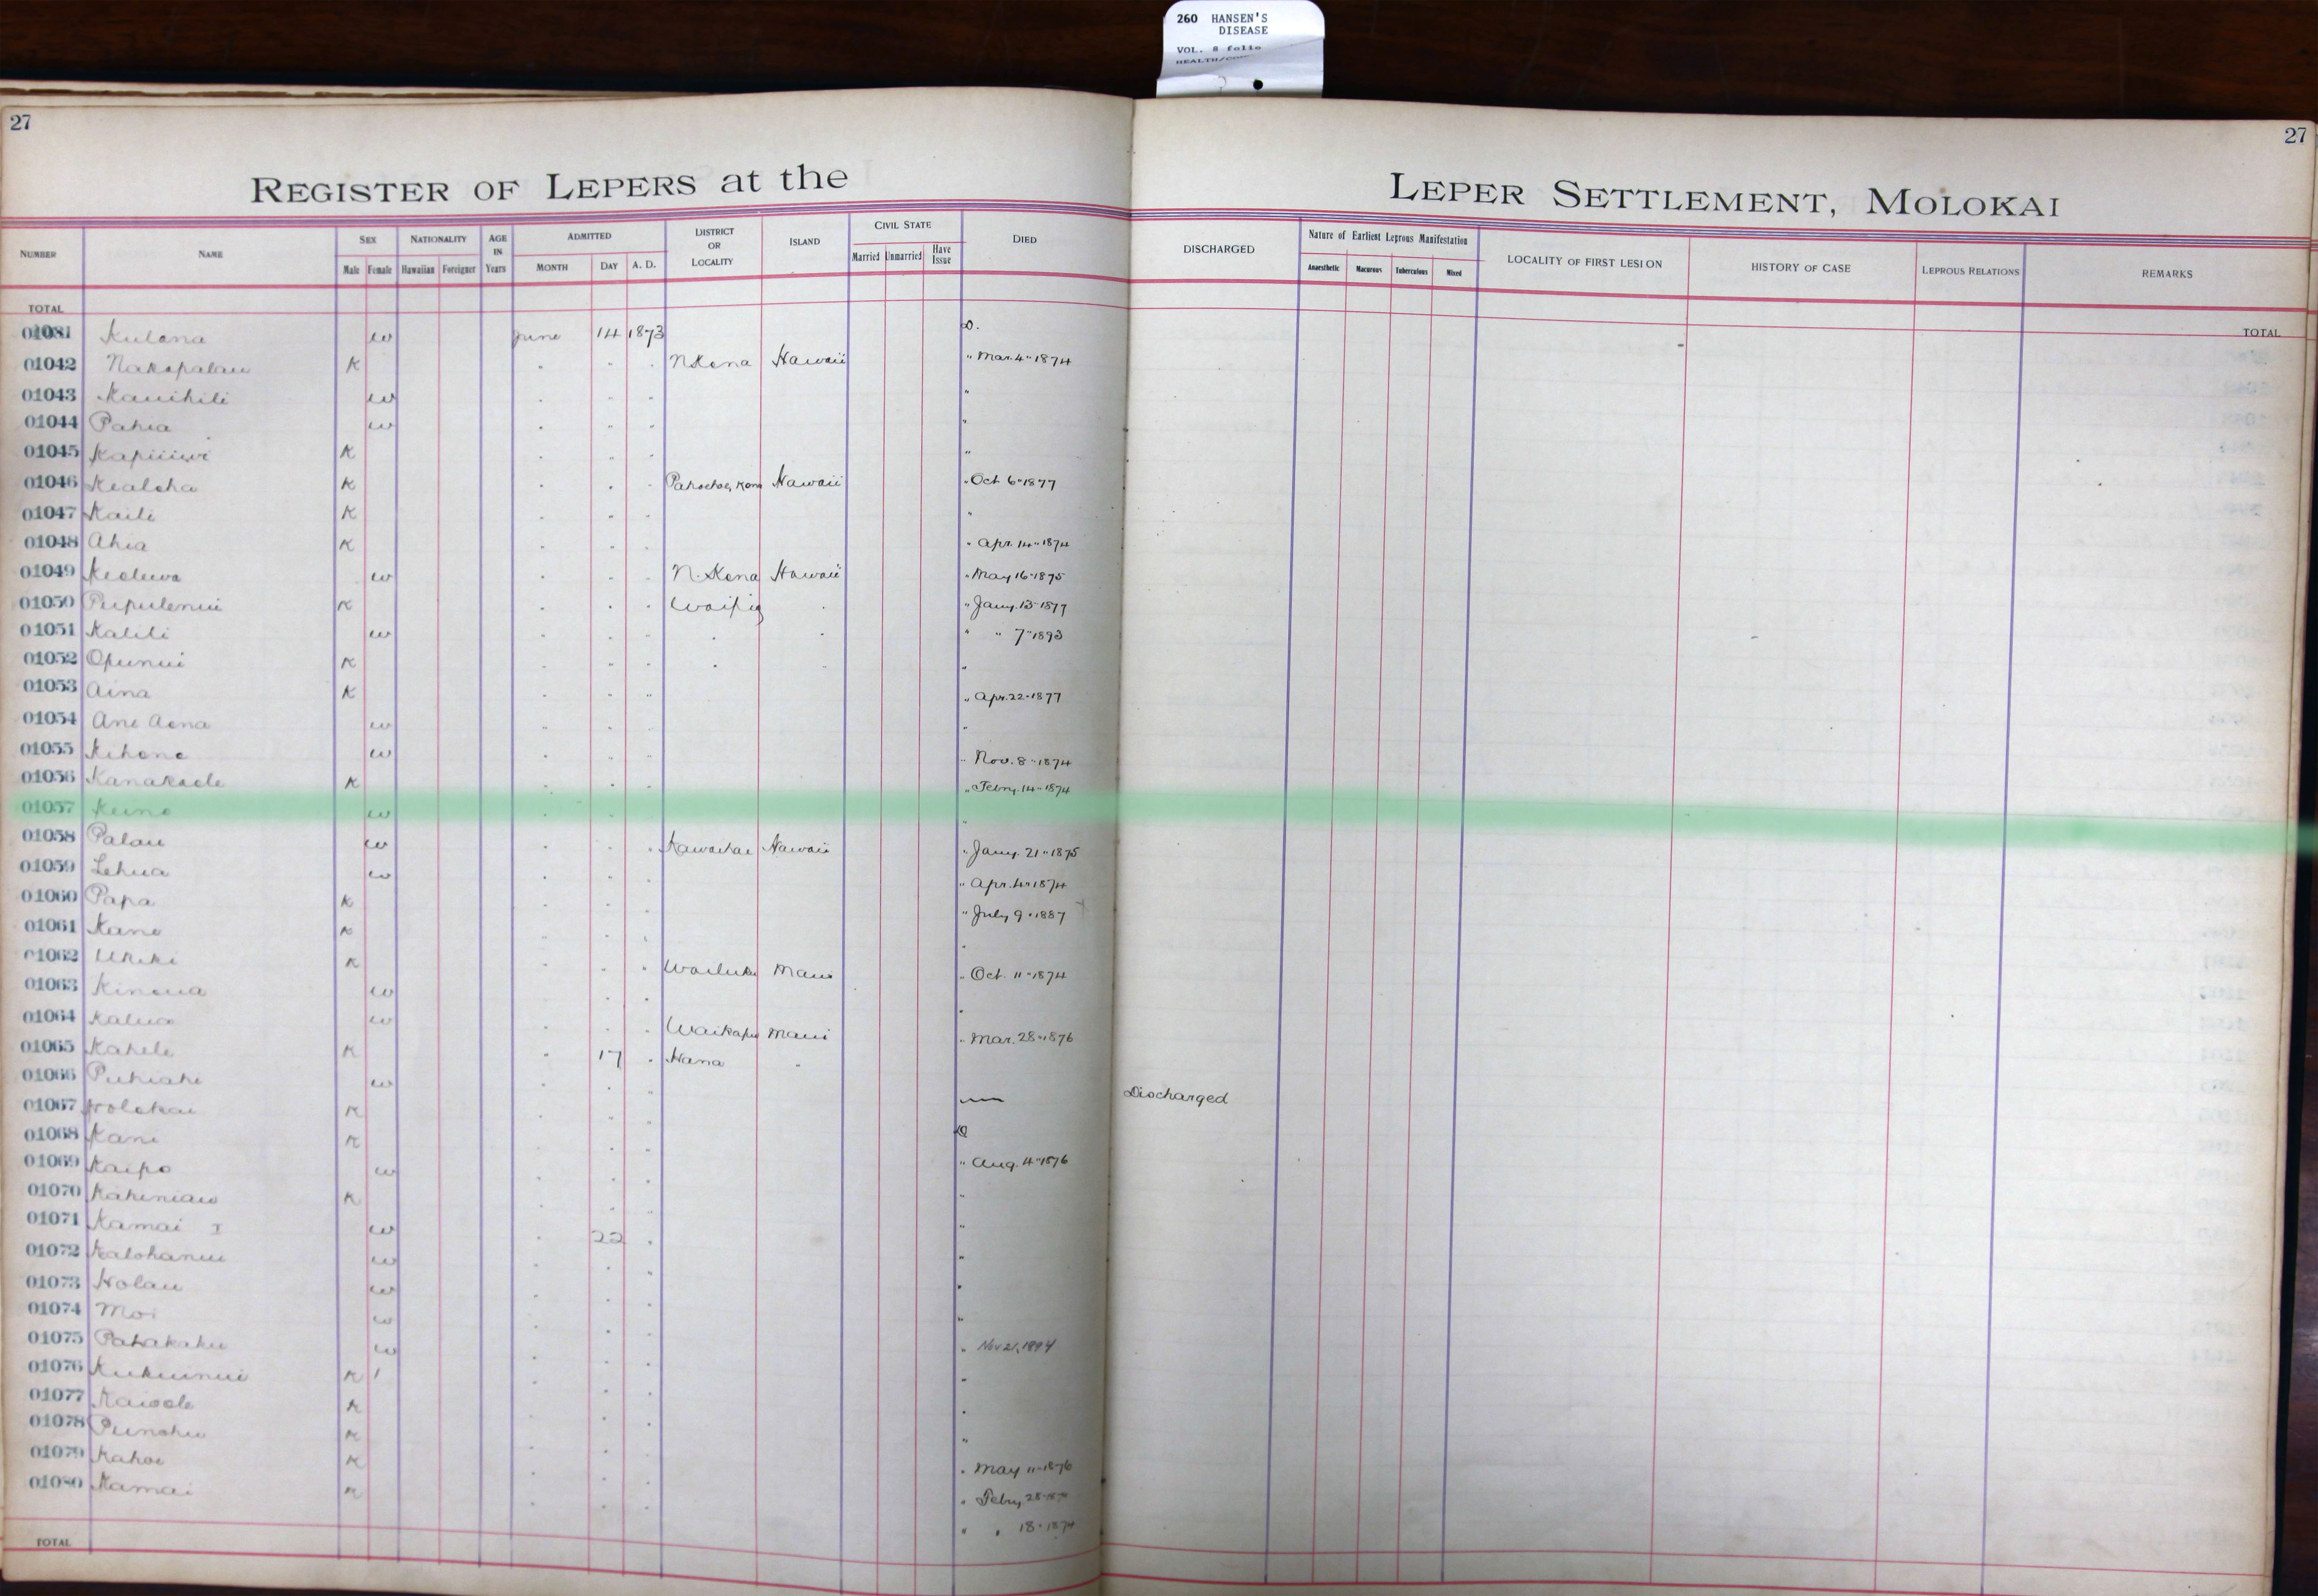 260 HANSEN'S
DISEASE
VOL. 8 folio
27
27
REGISTER OF LEPERS at the LEPER SETTLEMENT, MOLOKAI
NUMBER NAME SEX NATIONALITY AGE IN Years ADMITTED DISTRICT OR LOCALITY ISLAND CIVIL STATE DIED DISCHARGED Nature of Earliest Leprous Manifestation LOCALITY OF FIRST LESION HISTORY OF CASE LEPROUS RELATIONS REMARKS
Male Female Hawaiian Foreigner MONTH DAY A. D. Married Unmarried Have Issue Anaesthetic Macurous Tuberculous Mixed
TOTAL TOTAL
Kulana w June 14 1873 D.
01042 Nakapalau K " " " N Kona Hawaii " Mar. 4 " 1874
01043 Kauihili w " " " "
01044 Pahia w " " " "
01045 K " " " "
01046 Kealoha K " " " Pahoehoe, Kona Hawaii " Oct 6 " 1877
01047 Kaili K " " " "
01048 Ahia K " " " " Apr. 14 " 1874
01049 Keoluwa w " " " N. Kona Hawaii " May 16 " 1875
01050 Pupulenui K " " " Waipio " " Jany. 13 " 1877
01051 Kalili w " " " " " " " 7 " 1893
01052 Opunui K " " " " " "
01053 Aina K " " " " Apr. 22 " 1877
01054 Ane Aena w " " " "
01055 Kihene w " " " " Nov. 8 " 1874
01056 Kanakaole K " " " " Febry. 14 " 1874
01057 Keino w " " " "
01058 Palau w " " " Kawaihae Hawaii " Jany. 21 " 1875
01059 Lehua w " " " " Apr. 4 " 1874
01060 Papa K " " " " July 9 " 1887
01061 Kane K " " " "
01062 Ukeke K " " " Wailuku Maui " Oct. 11 " 1874
01063 Kinoua w " " " "
01064 Kalua w " " " Waikapu Maui " Mar. 28 " 1876
01065 Kahele K " 17 " Hana "
01066 Puhiahi w " " " — Discharged
01067 Holokai K " " " D
01068 Kani K " " " " Aug. 4 " 1876
01069 Kaipo w " " " "
01070 Kaheniau K " " " "
01071 Kamai I w " 22 " "
01072 Kalohanui w " " " "
01073 Holau w " " " "
01074 Moi w " " " " Nov 21, 1894
01075 Pahakaku w " " " "
01076 Kukuinui K 1 " " " "
01077 Kaiaole K " " " "
01078 Punohu K " " " " May 11 " 1876
01079 Kahoe K " " " " Febry 28
01080 Kamai K " " " " " 18 " 1874
TOTAL